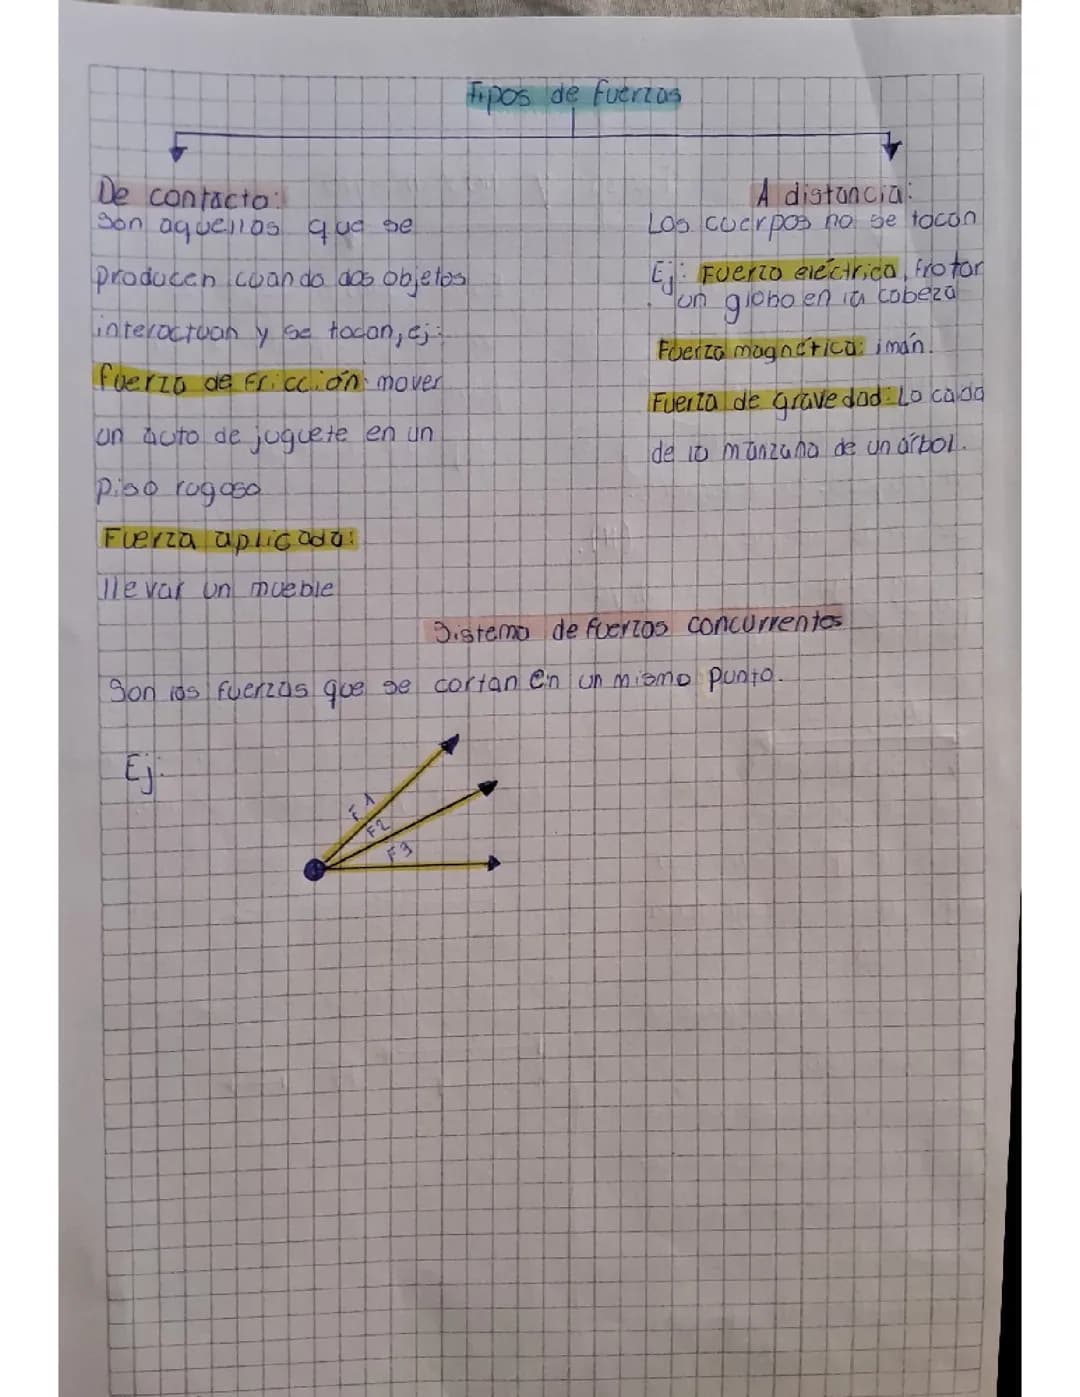 Tipos de fuerzas
De contacto:
Son aquellas que se
producen cuando dos objetos
interactuan y se tocan, ej:
fuerza de fricción: mover
un auto de juguete en un
piso rugoso
Fuerza aplicada:
llevar un mueble
A distancia:
Los cuerpos no se tocan
Ej: Fuerza eléctrica, frotar
un globo en la cabeza
Fuerza magnética: imán.
Fuerza de gravedad: La caida
de la manzana de un árbol.
Sistema de fuerzas concurrentes
Son las fuerzas que se cortan en un mismo punto.
Ej:
F1
F2
F3